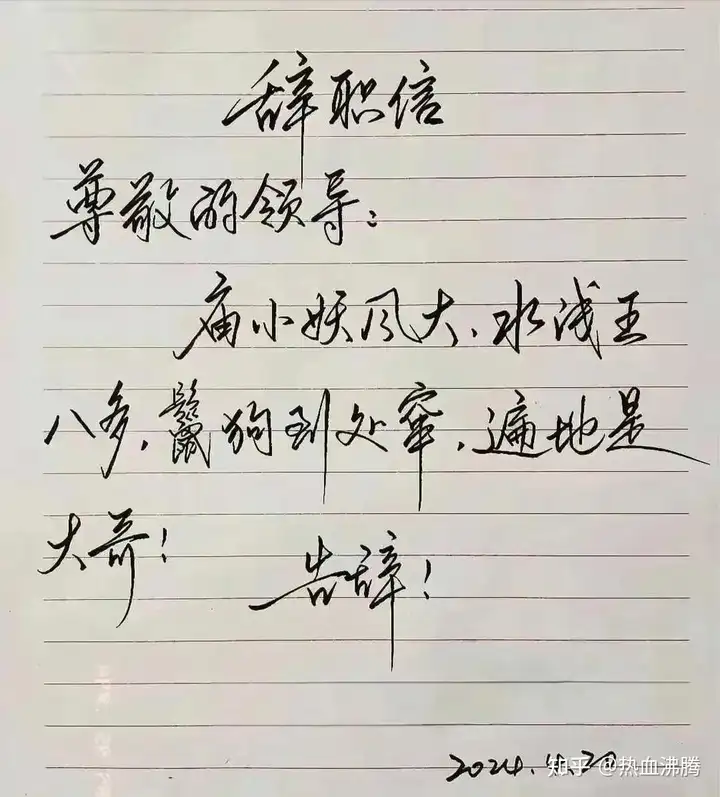 辞职信
尊敬的领导:
庙小妖风大、水浅王
八多,鬣狗到处窜,遍地是
大哥!
告辞!
2024.4.20
知乎 @热血沸腾